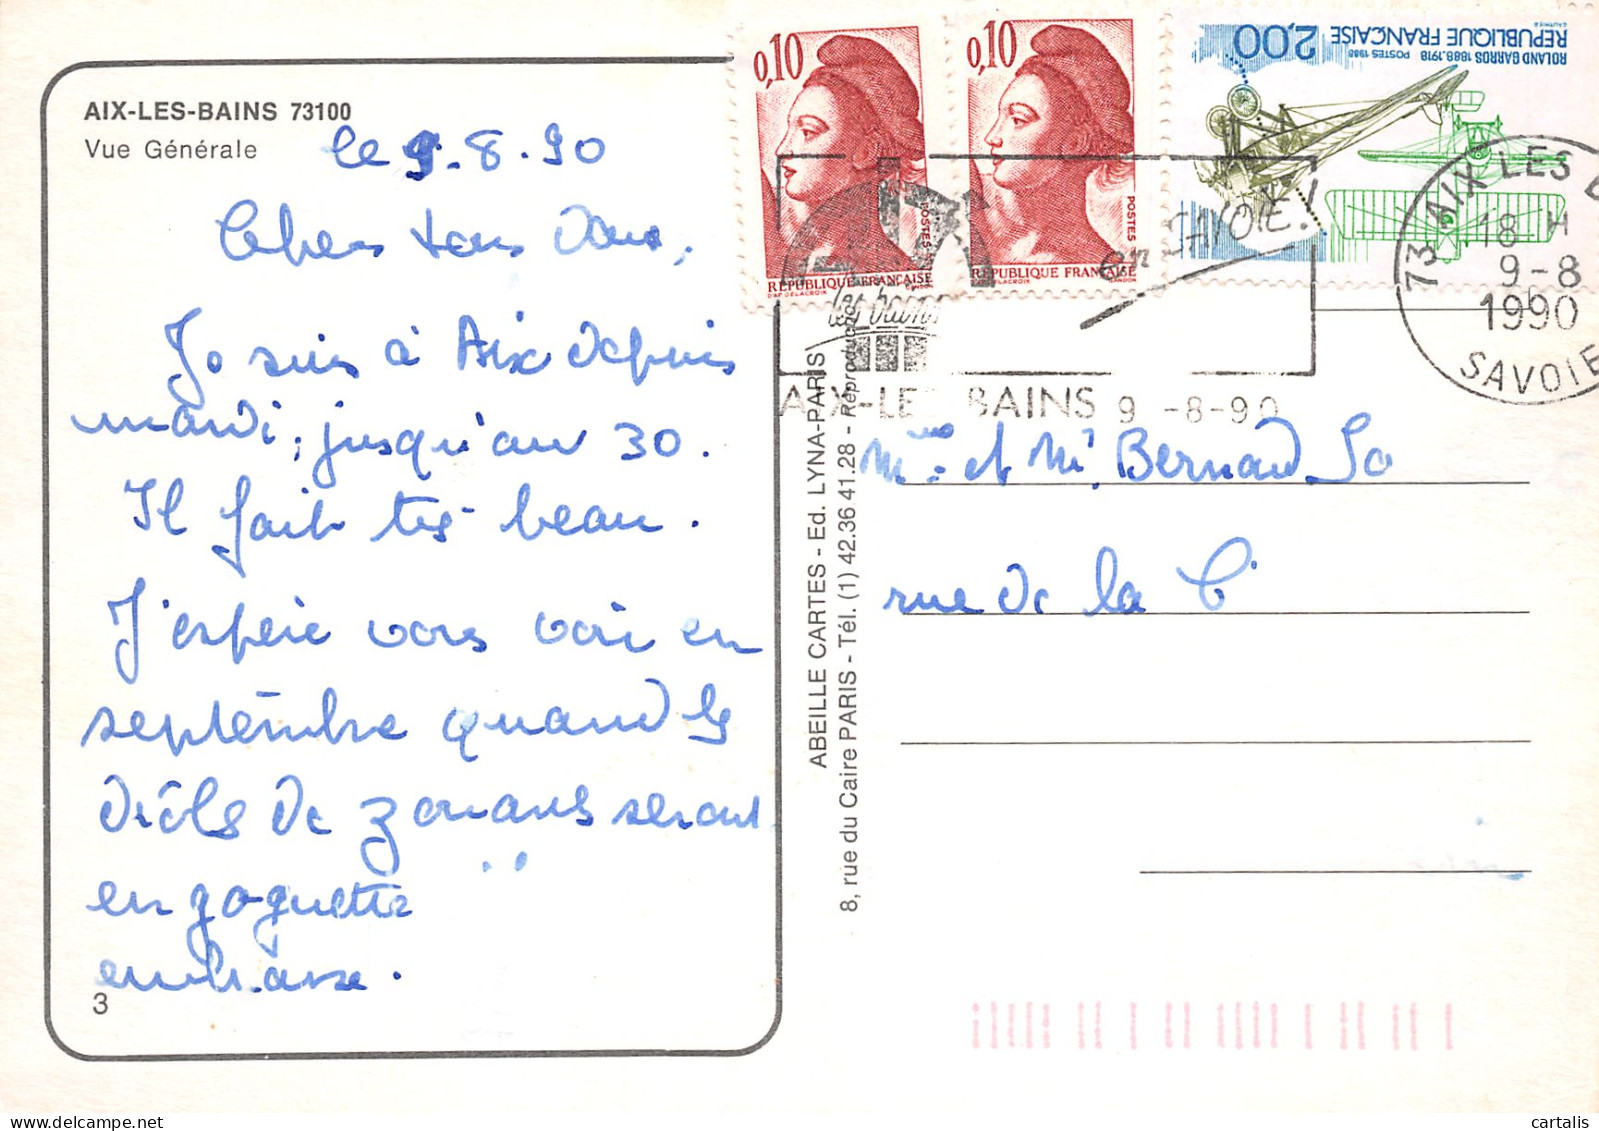 AIX-LES-BAINS 73100
Vue Générale
le 9.8.90
Chers tous deux,
Je suis à Aix depuis
mardi, jusqu'au 30.
Il fait très beau.
J'espère vous voir en
septembre quand les
drôles de
seront
en goguette
embrasse.
3
ABEILLE CARTES - Ed. LYNA-PARIS
8, rue du Caire PARIS - Tél. (1) 42.36.41.28 - Reproduc
0,10
RÉPUBLIQUE FRANÇAISE
POSTES
D'AP. DELACROIX
GANDON
0,10
RÉPUBLIQUE FRANÇAISE
POSTES
D'AP. DELACROIX
GANDON
ROLAND GARROS 1888-1918 POSTES 1988
RÉPUBLIQUE FRANÇAISE 2,00
GAUTHIER
les bains
en SAVOIE!
AIX-LES BAINS 9 -8-90
73 AIX LES B
18 H
9-8
1990
SAVOIE
Mme et Mr Bernard
rue de la
cartalis